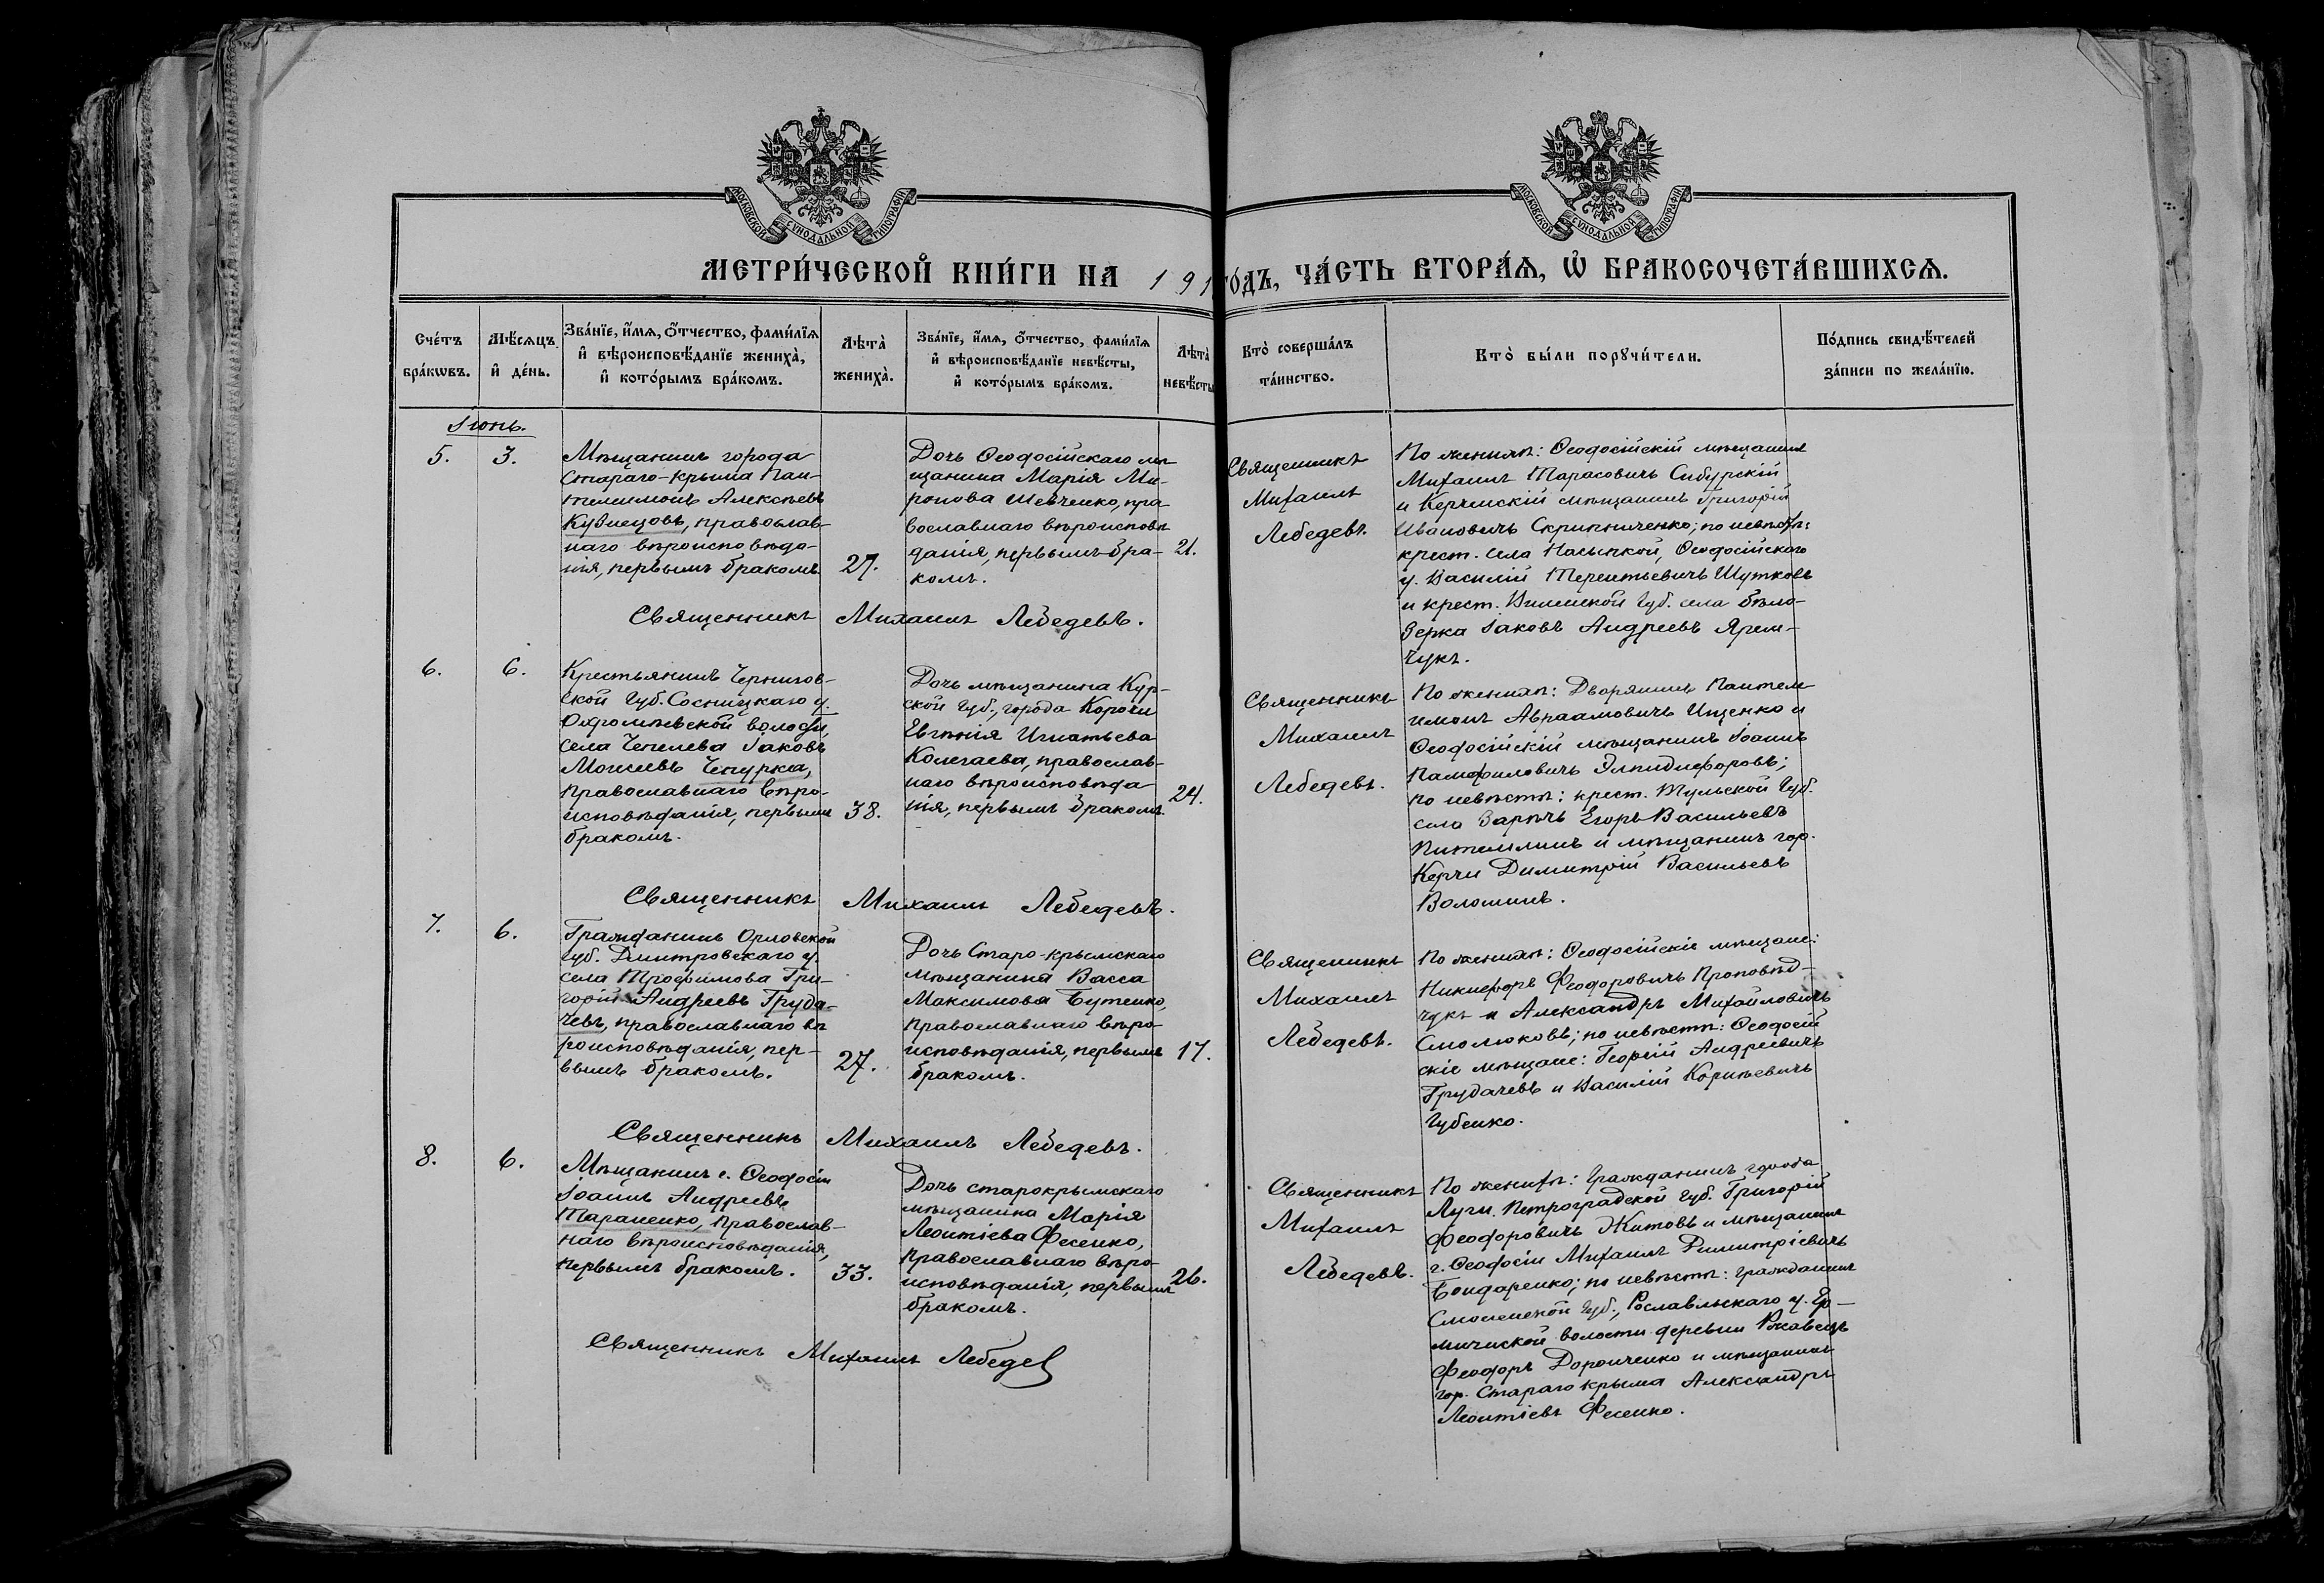 МОСКОВСКОЙ СѴНОДАЛЬНОЙ ТИПОГРАФІИ
МОСКОВСКОЙ СѴНОДАЛЬНОЙ ТИПОГРАФІИ
МЕТРИ́ЧЕСКОЙ КНИ́ГИ НА 191 ГО́ДЪ, ЧА́СТЬ ВТОРА́Ѧ, Ѽ БРАКОСОЧЕТА́ВШИХСѦ.
Сче́тъ бра́кѡвъ.
Мѣ́сѧцъ и де́нь.
Зва́нїе, и́мѧ, ѻ́тчество, фами́лїѧ
и вѣроисповѣ́данїе жениха̀,
и кото́рымъ бра́комъ.
Лѣта̀ жениха̀.
Зва́нїе, и́мѧ, ѻ́тчество, фами́лїѧ
и вѣроисповѣ́данїе невѣ́сты,
и кото́рымъ бра́комъ.
Лѣта̀ невѣ́сты
Кто̀ соверша́лъ та́инство.
Кто̀ бы́ли порꙋчи́тели.
По́дпись свидѣ́телей
за́писи по жела́нїю.
Іюнь.
5.
3.
Мѣщанинъ города
Стараго-Крыма Пан-
телеимонъ Алексѣевъ
Кузнецовъ, православ-
наго вѣроисповѣда-
нія, первымъ бракомъ.
27.
Дочь Ѳеодосійскаго мѣ-
щанина Марія Ми-
ронова Шевченко, пра-
вославнаго вѣроисповѣ-
данія, первымъ бра-
комъ.
21.
Священникъ
Михаилъ
Лебедевъ.
По женихѣ: Ѳеодосійскій мѣщанинъ
Михаилъ Тарасовичъ Сибурскій
и Керченскій мѣщанинъ Григорій
Ивановичъ Скрипниченко; по невѣстѣ:
крест. села Насыпкой, Ѳеодосійскаго
у. Василій Терентьевичъ Шутковъ
и крест. губ. села Бѣло-
зерка Іаковъ Андреевъ Ярем-
чукъ.
Священникъ Михаилъ Лебедевъ.
6.
6.
Крестьянинъ Чернигов-
ской губ. Сосницкаго у.
волости,
села Чепелева Іаковъ
Моисеевъ Чепурка,
православнаго вѣро-
исповѣданія, первымъ
бракомъ.
38.
Дочь мѣщанина Кур-
ской губ., города Корочи
Евгенія Игнатьева
Колегаева, православ-
наго вѣроисповѣда-
нія, первымъ бракомъ.
24.
Священникъ
Михаилъ
Лебедевъ.
По женихѣ: Дворянинъ Пантеле-
имонъ Авраамовичъ Ищенко и
Ѳеодосійскій мѣщанинъ Іоаннъ
Памфиловичъ Элпидифоровъ;
по невѣстѣ: крест. Тульской губ.
села Зарѣчъ Егоръ Васильевъ
и мѣщанинъ гор.
Керчи Димитрій Васильевъ
Волошинъ.
Священникъ Михаилъ Лебедевъ.
7.
6.
Гражданинъ Орловской
губ. Дмитровскаго у.
села Трофимова Гри-
горій Андреевъ Груда-
чевъ, православнаго вѣ-
роисповѣданія, пер-
вымъ бракомъ.
27.
Дочь Старо-крымскаго
мѣщанина Васса
Максимова Бутенко,
православнаго вѣро-
исповѣданія, первымъ
бракомъ.
17.
Священникъ
Михаилъ
Лебедевъ.
По женихѣ: Ѳеодосійскіе мѣщане:
Никифоръ Феодоровичъ Проповѣд-
чукъ и Александръ Михайловичъ
Смолюковъ; по невѣстѣ: Ѳеодосій
скіе мѣщане: Георгій Андреевичъ
Грудачевъ и Василій Корнѣевичъ
Губенко.
Священникъ Михаилъ Лебедевъ.
8.
6.
Мѣщанинъ г. Ѳеодосіи
Іоаннъ Андреевъ
Тараненко, православ-
наго вѣроисповѣданія,
первымъ бракомъ.
33.
Дочь старокрымскаго
мѣщанина Марія
Леонтіева Фесенко,
православнаго вѣро-
исповѣданія, первымъ
бракомъ.
26.
Священникъ
Михаилъ
Лебедевъ.
По женихѣ: гражданинъ города
Луги, Петроградской губ. Григорій
Феодоровичъ Житовъ и мѣщанинъ
г. Ѳеодосіи Михаилъ Димитріевичъ
Бондаренко; по невѣстѣ: гражданинъ
Смоленской губ., Рославльскаго у. Ер-
мичиской волости деревни Ржавецъ
Феодоръ Доронченко и мѣщанинъ
гор. Стараго крыма Александръ
Леонтіевъ Фесенко.
Священникъ Михаилъ Лебедев